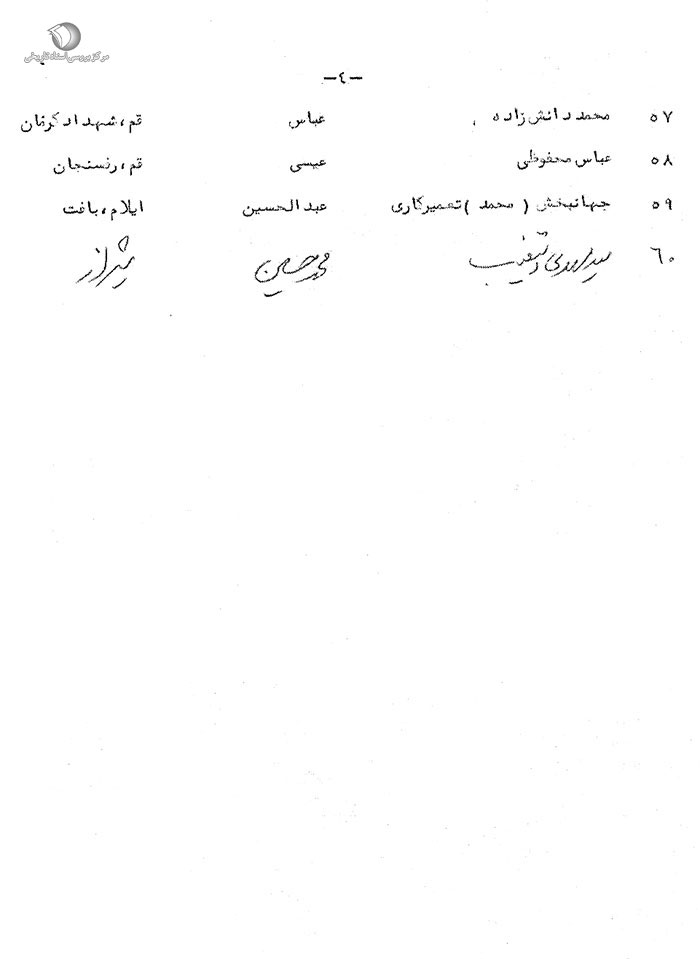 مرکز بررسی اسناد تاریخی
-٤-
٥٧ محمد دانش زاده عباس قم، شهداد کرمان
٥٨ عباس محفوظی عیسی قم، رفسنجان
٥٩ جهانبخش ( محمد ) تعمیرکاری عبدالحسین ایلام، بافت
٦٠ محمد حسین شیراز